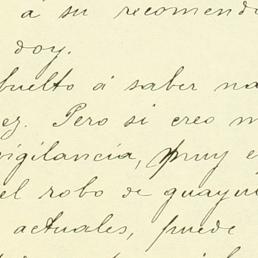 á su recomend
doy.
buelto á saber na
ez. Pero si creo m
vigilancia, muy e
el robo de guayu
actuales, puede